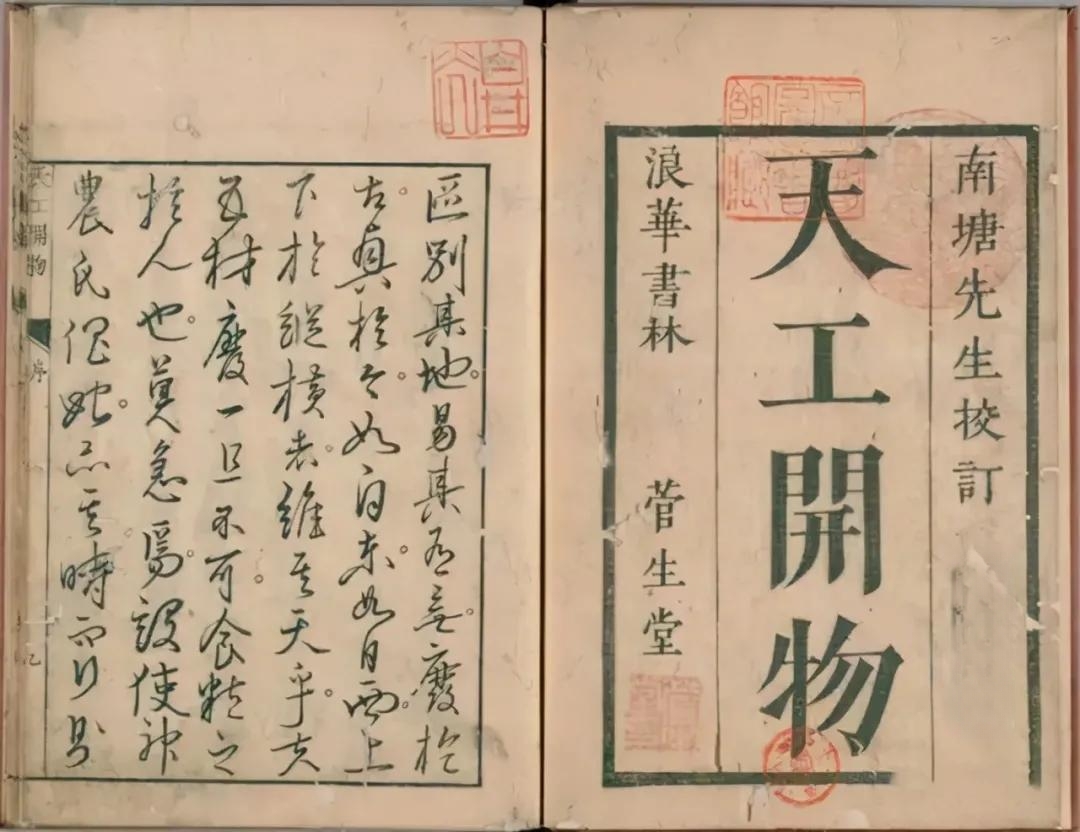 南塘先生校訂
天工開物
浪華書林 菅生堂
區別其地。易其有無。廢於
古。於今。如東。如日西。上
下於縱橫者。維其天乎。夫
五材廢一且不可。食粒之
於人也。莫急焉。設使神
農氏。亦其時而行則
天工開物 序